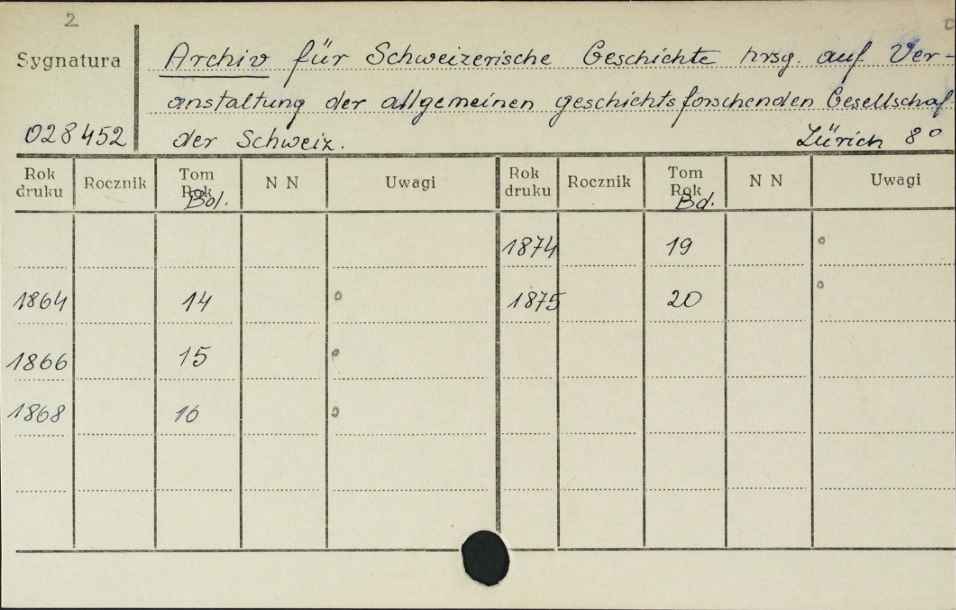 2
Sygnatura
Archiv für Schweizerische Geschichte hrsg. auf Ver-
anstaltung der allgemeinen geschichtsforschenden Gesellschaf
028452
der Schweiz.
Zürich 8°
Rok druku Rocznik Tom Rok Bd. N N Uwagi Rok druku Rocznik Tom Rok Bd. N N Uwagi
1874 19 o
1864 14 o 1875 20 o
1866 15 o
1868 16 o